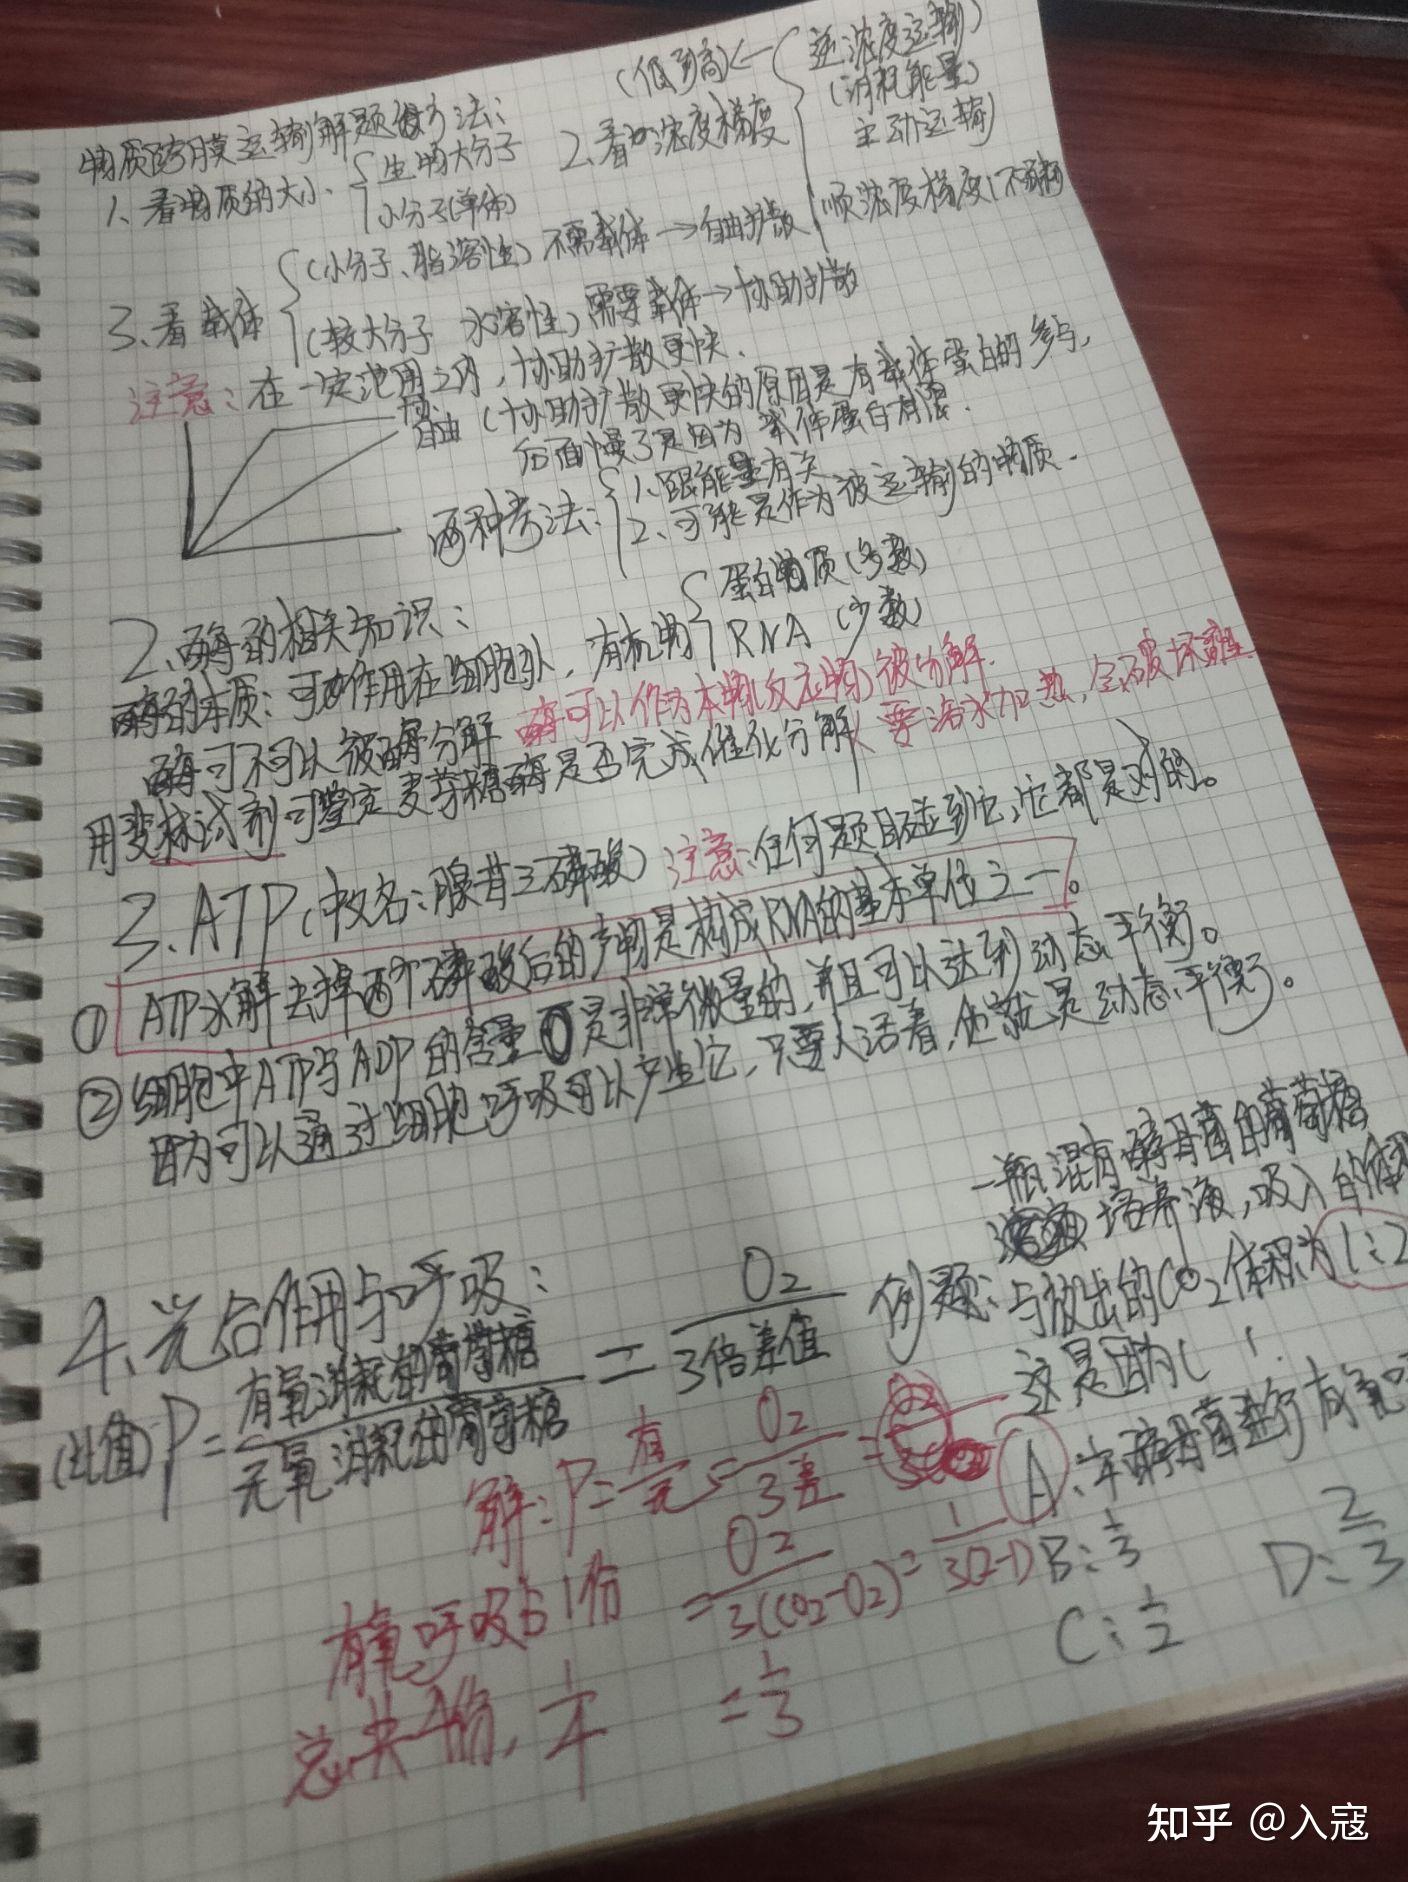 物质跨膜运输解题的方法:
1、看物质的大小 生物大分子
小分子(单体)
2、看浓度梯度
(低到高)← 逆浓度运输)
(消耗能量)
主动运输)
顺浓度梯度(不消耗
3、看载体 (小分子、脂溶性) 不需载体→自由扩散
(较大分子 水溶性) 需要载体→协助扩散
注意:在一定范围之内,协助扩散更快.
自由 (协助扩散更快的原因是有载体蛋白的参与,
后面慢了是因为载体蛋白有限.
两种考法: 1、跟能量有关
2、可能是作为被运输的物质.
2、酶的相关知识:
酶的本质:可作用在细胞外,有机物 蛋白质(多数)
RNA (少数)
酶可不可以被酶分解 酶可以作为本物(反应物)被分解.
用斐林试剂可鉴定麦芽糖酶是否完成催化分解(要浴水加热,会破坏
3.ATP(中文名:腺苷三磷酸) 注意:任何题目碰到它,它都是对的。
① ATP水解去掉两个磷酸后的产物是构成RNA的基本单位之一。
② 细胞中ATP与ADP的含量是非常微量的,并且可以达到动态平衡。
因为可以通过细胞呼吸可以产生它,只要人活着,他就是动态平衡了。
4、光合作用与呼吸:
(比值)P=有氧消耗的葡萄糖/无氧消耗的葡萄糖=O2/3倍差值
例题: 一瓶混有酵母菌的葡萄糖
培养液,吸入的
与放出的CO2体积为1:2
这是因为( ).
A:1/4酵母菌进行有氧
B:1/3
C:1/2
D:2/3
解:P=有/无=O2/3差=
=O2/3(CO2-O2)=1/3(2-1)
=1/3
有氧呼吸占1份
总共4份,1/4
知乎 @入寇